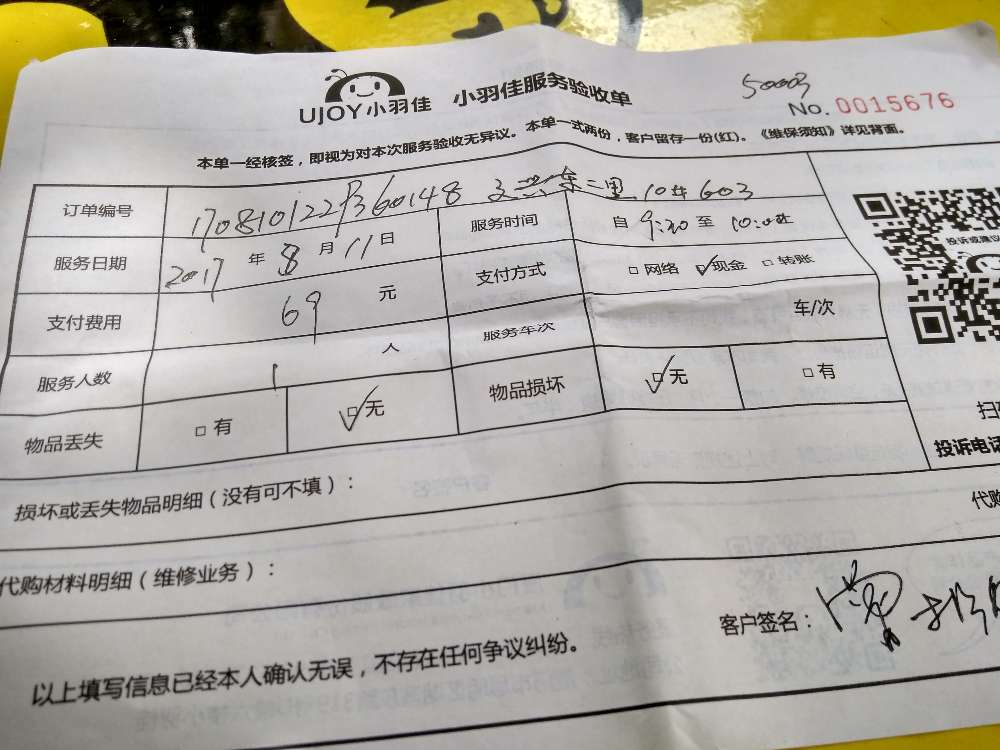 UJOY小羽佳 小羽佳服务验收单
No. 0015676
本单一经核签，即视为对本次服务验收无异议。本单一式两份，客户留存一份(红)。《维保须知》详见背面。
订单编号 东二里 10# 603
服务日期 2017 年 8 月 11 日 服务时间 自 9:20 至
支付费用 69 元 支付方式 □网络 ☑现金 □转账
服务人数 1 人 服务车次 车/次
物品丢失 □有 ☑无 物品损坏 ☑无 □有
投诉或建议
投诉电话
损坏或丢失物品明细（没有可不填）：
代购
代购材料明细（维修业务）：
客户签名：
以上填写信息已经本人确认无误，不存在任何争议纠纷。